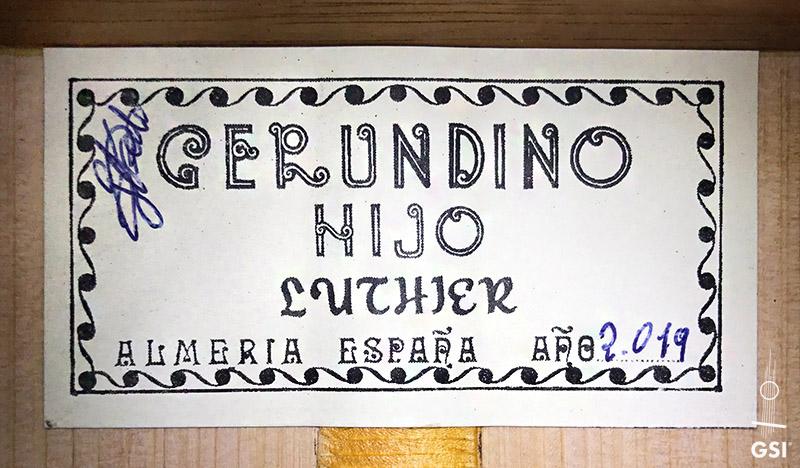 GERUNDINO
HIJO
LUTHIER
ALMERIA ESPAÑA AÑO 2.019
GSI